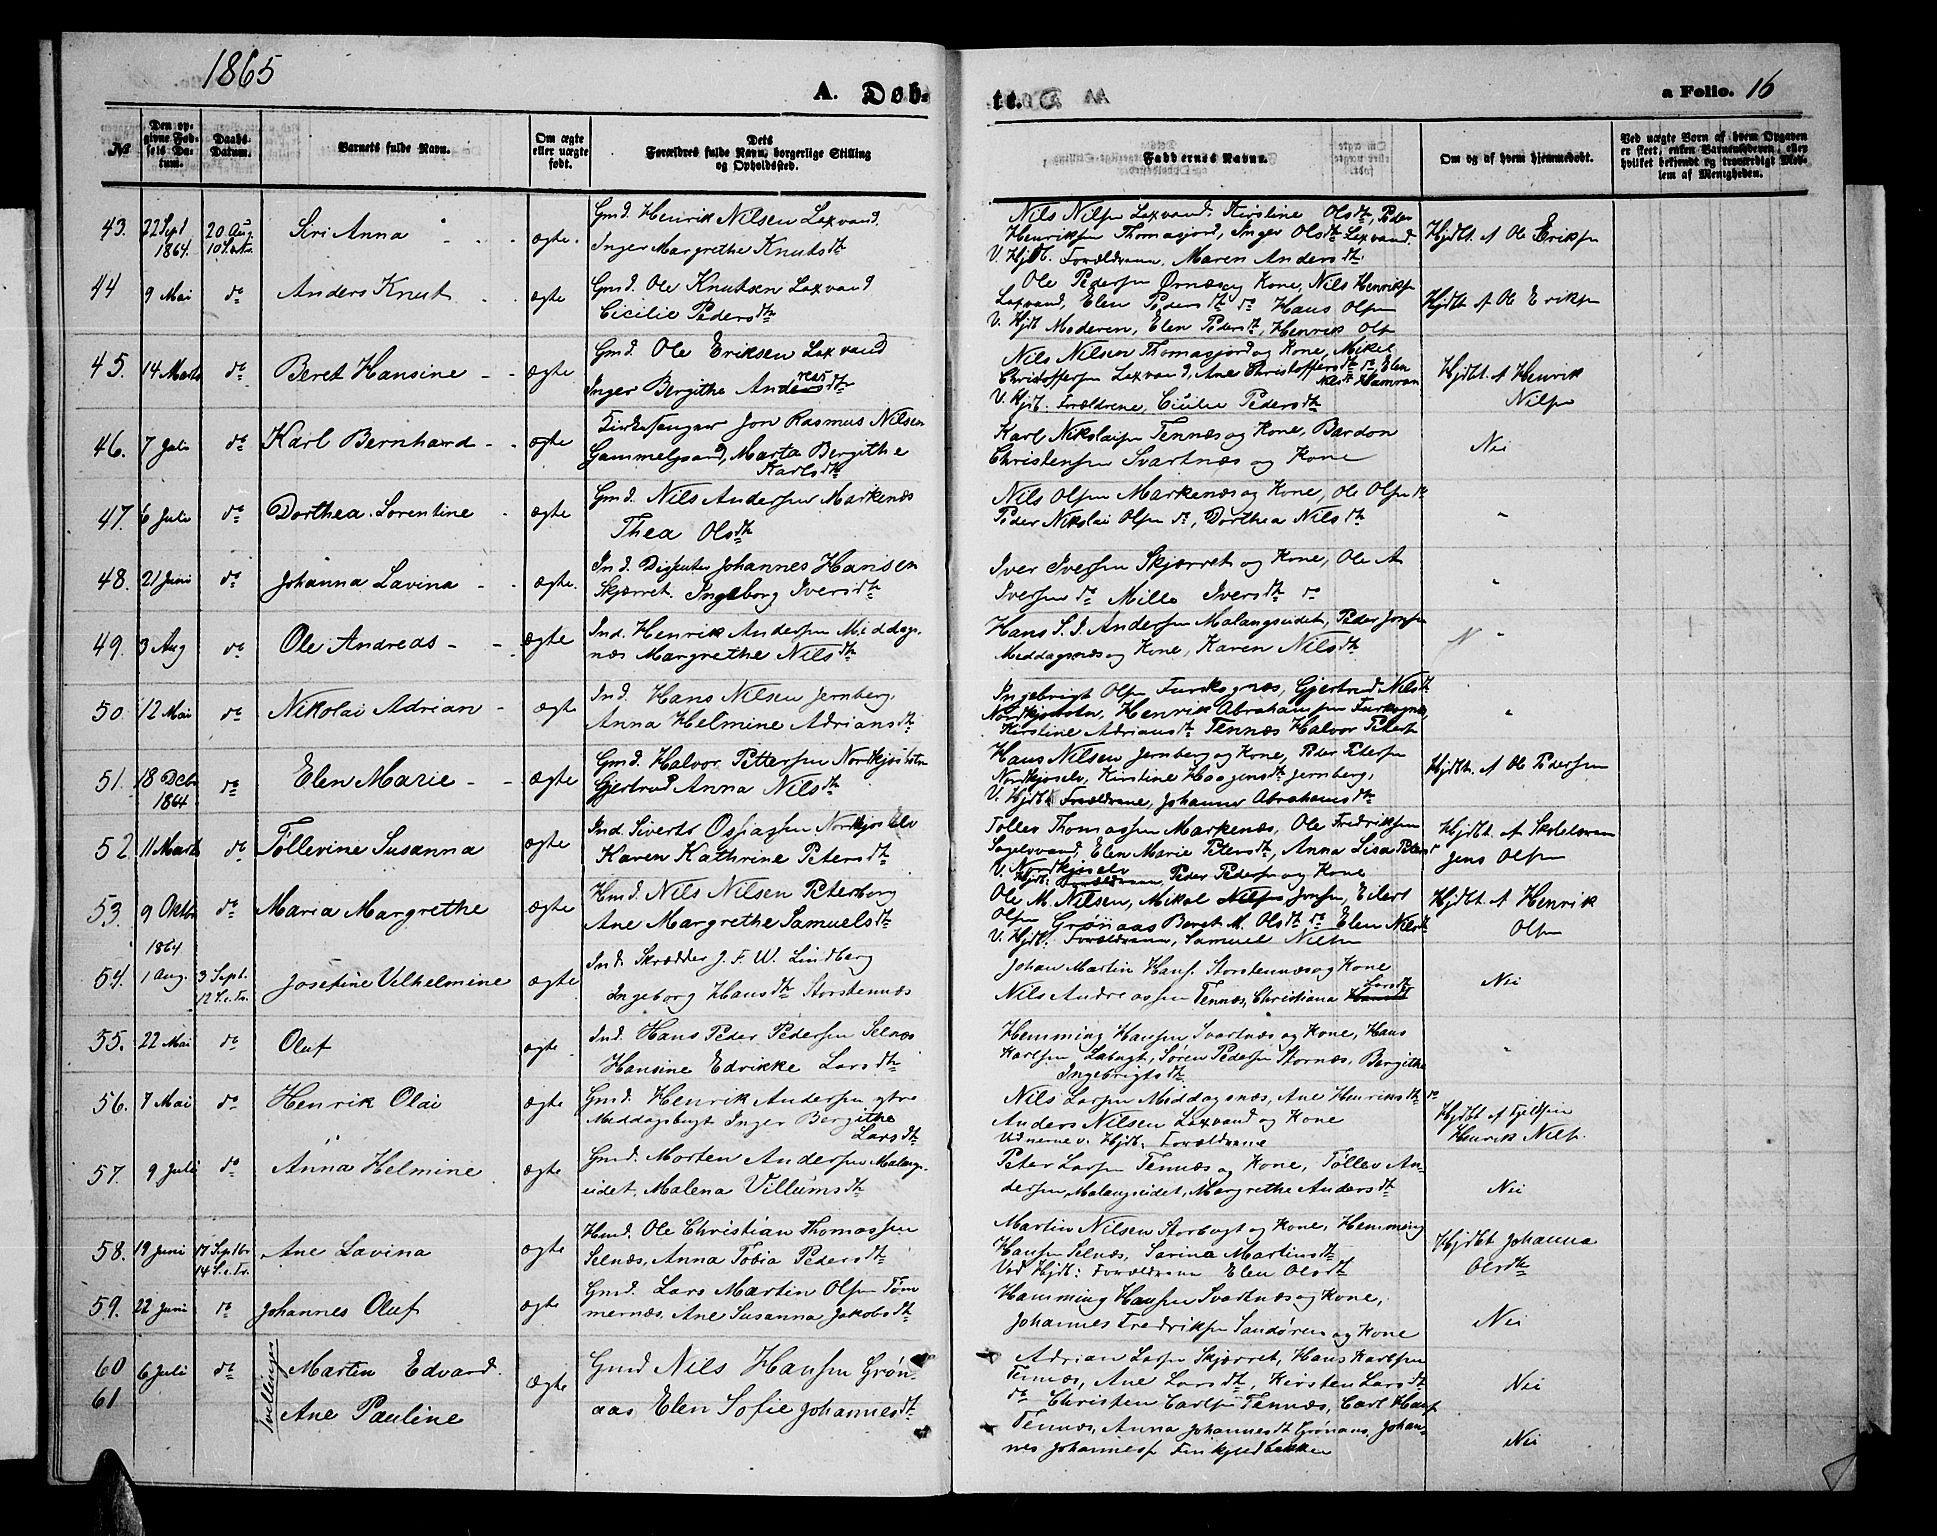 1865
A. Døb-
te.
a Folio. 16
№
Den opgivne Fødsels Datum.
Daabs-Datum.
Barnets fulde Navn.
Om ægte eller uægte født.
Dets Forældres fulde Navn, borgerlige Stilling og Opholdssted.
Faddernes Navn.
Om og af hvem hjemmedøbt.
Ved uægte Børn af hvem Opgaven er skeet, enten Barnemoderen, eller hvilket bekjendt og troværdigt Medlem af Menigheden.
43. 22 Sept 1864. 20 Aug. 10 S.e.Tr. Siri Anna ægte. Gmd. Henrik Nilsen Laxvand.
Inger Margrethe Knutsdtr
Nils Nilsen Laxvand, Kirstine Olsdtr, Peder
Henriksen Thomasjord, Inger Olsdtr Laxvand.
V. Hjdt. Forældrene, Maren Andersdtr.
Hjdbt. af Ole Eriksen
44 9 Mai do Anders Knut ægte Gmd. Ole Knutsen Laxvand
Cicilie Pedersdtr
Ole Pedersen Ørnæs og Kone, Nils Henriksen
Laxvand, Elen Pedersdtr do Hans Olsen
V. Hjdt Moderen, Elen Pedersdtr, Henrik Olsen
Hjdbt af Ole Eriksen
45. 14 Marts do Beret Hansine ægte Gmd. Ole Eriksen Laxvand
Inger Bergithe Andreasdtr
Nils Nilsen Thomasjord og Kone, Mikel
Christoffersen Laxvand, Ane Christoffersdtr do, Elen
V. Hjdt. Forældrene, Cicilie Pedersdtr
Hjdbt. af Henrik
Nilsen
46. 7 Juli do Karl Bernhard ægte Kirkesanger Jon Rasmus Nilsen
Gammelgaard, Marta Bergithe
Karlsdtr
Karl Nikolaisen Tennæs og Kone, Bardon
Christensen Svartnæs og Kone
Nei
47. 6 Juli do Dorthea Lorentine ægte Gmd. Nils Andersen Markenæs
Thea Olsdtr
Nils Olsen Markenæs og Kone, Ole Olsen do
Peder Nikolai Olsen do, Dorthea Nilsdtr
"
48. 21 Juni do Johanna Lavina ægte. Ind. Dissenter Johannes Hansen
Skjærret. Ingeborg Iversdtr
Iver Iversen Skjærret og Kone, Ole A
Iversen do Mille Iversdtr do
"
49. 3 Aug do Ole Andreas ægte Ind. Henrik Andersen Middags-
næs Margrethe Nilsdtr
Hans S. J. Andersen Malangseidet, Peder Jonsen
Middagsnæs og Kone, Karen Nilsdtr
"
50. 12 Mai do Nikolai Adrian ægte Ind. Hans Nilsen Jernberg.
Anna Helmine Adriansdtr
Ingebrigt Olsen Furuksgnæs, Gjertrud Nilsdtr
Nordkjosbotn, Henrik Abrahamsen
Kirstine Adriansdtr Tennæs Halvor Peters
"
51. 18 Debr 1864 do Elen Marie ægte Gmd. Halvor Pettersen Nordkjosbotn
Gjertrud Anna Nilsdtr
Hans Nilsen Jernberg og Kone, Peder Petersen
Nordkjoselv, Kirstine Haagensdtr Jernberg,
V. Hjdbt Forældrene, Johanne Abrahamsdtr
Hjdbt. af Ole Pedersen
52 11 Marts do Tøllevine Susanna ægte Ind. Siverts Ospiasen Nordkjoselv
Karen Kathrine Petersdtr
Tølles Thomassen Markenæs, Ole Fredriksen
Sagelvvand, Elen Marie Petersdtr, Anna Lisa Peters
V. Nordkjoselv
Hjdt: Forældrene, Peder Pedersen og Kone
Hjdbt. af Skolelærer
Jens Olsen
53. 9 Oktbr 1864 do Maria Margrethe ægte Hmd. Nils Nilsen Peterborg
Ane Margrethe Samuelsdtr
Ole M. Nilsen, Mikal Nilsen Jonsen, Eilert
Olsen Grønaas Beret M. Olsdtr do Elen Nilsdtr
V. Hjdt. Forældrene, Samuel Nilsen
Hjdbt. af Henrik
Olsen
54. 1 Aug. 3 Sept. 12 S.e.Tr. Josefine Vilhelmine ægte Ind. Skrædder J. F. W. Lindberg
Ingeborg Hansdtr Storstennæs
Johan Martin Hans. Storstennæs og Kone
Nils Andreassen Tennæs, Christiana Larsdtr
Nei
55. 22 Mai do Oluf ægte Ind. Hans Peder Pedersen Selnæs
Hansine Edrikke Larsdtr
Hemming Hansen Svartnæs og Kone, Hans
Karlsen Labugt, Søren Pedersen Stornæs, Bergithe
Ingebrigtsdtr
"
56. 7 Mai do Henrik Olai ægte Gmd. Henrik Andersen ytre
Middagsbugt Inger Bergithe
Larsdtr
Nils Larsen Middagsnæs, Ane Henriksdtr do
Anders Nilsen Laxvand og Kone
Vidnerne v. Hjdt. Forældrene
Hjdbt af Fjeldfin
Henrik Nilsen
57. 9 Juli do Anna Helmine ægte Gmd. Morten Andersen Malangs-
eidet, Malena Villumsdtr
Peter Larsen Tennæs og Kone, Tøllev An-
dersen, Malangseidet, Margrethe Andersdtr
Nei
58. 19 Juni 17 Septbr 14 S.e.Tr. Ane Lavina ægte Hmd. Ole Christian Thomassen
Selnæs, Anna Tobia Pedersdtr
Martin Nilsen Storbugt og Kone, Hemming
Hansen Selnæs, Sarina Martinsdtr
Ved Hjdt: Forældrene Elen Olsdtr
Hjdbt Johanna
Olsdtr
59. 22 Juni do Johannes Oluf ægte Gmd. Lars Martin Olsen Tøm-
mernæs, Ane Susanna Jakobsdtr
Hemming Hansen Svartnæs og Kone,
Johannes Fredriksen Sandøren og Kone
Nei
60 6 Juli do Tvillinger Martin Edvard. ægte Gmd Nils Hansen Grøn-
61 Ane Pauline aas Elen Sofie Johannesdtr
Adrian Larsen Skjærret, Hans Karlsen
Tennæs, Ane Larsdtr, Kirsten Larsdtr
do Christen Carlsen Tennæs, Carl Hans
Tennæs, Anna Johannesdtr Grønaas, Johan-
nes Johannesen
Nei
Nei